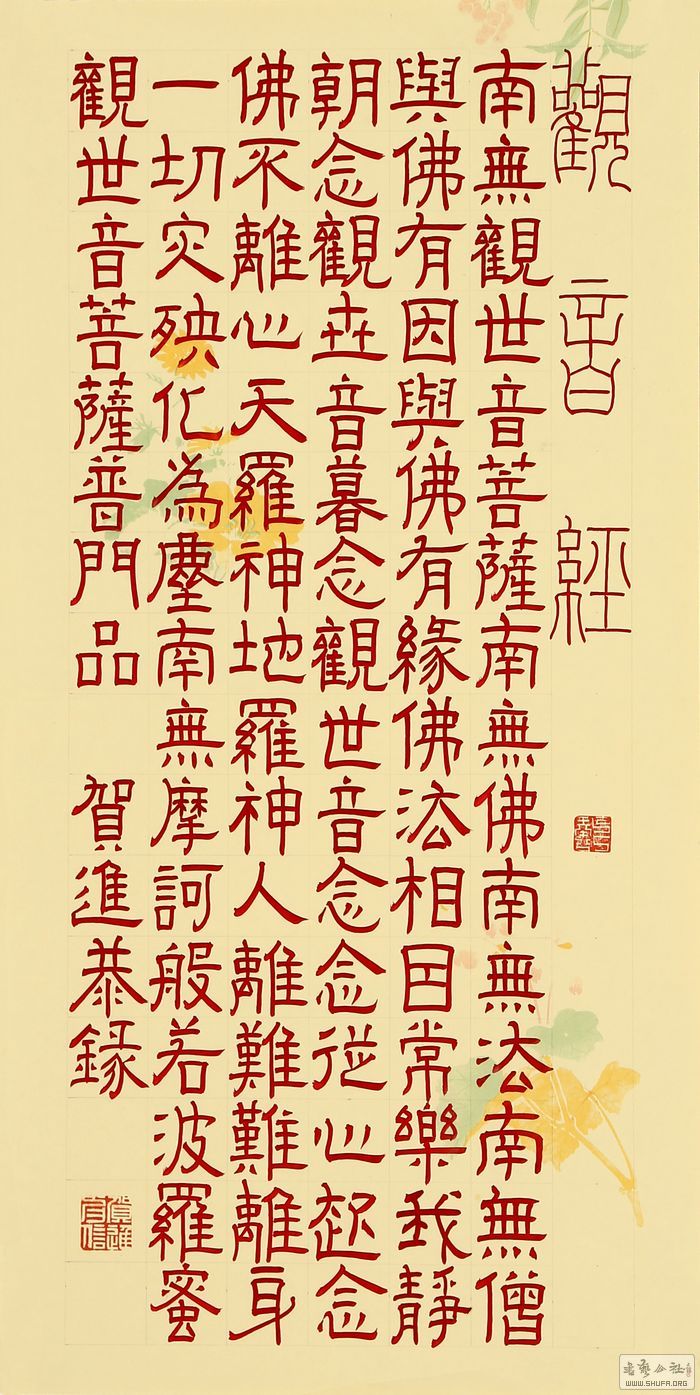 觀音經
南無觀世音菩薩南無佛南無法南無僧
與佛有因與佛有緣佛法相因常樂我靜
朝念觀世音暮念觀世音念念從心起念
佛不離心天羅神地羅神人離難難離身
一切灾殃化為塵南無摩訶般若波羅蜜
觀世音菩薩普門品 賀進恭錄
書藝公社
WWW.SHUFA.ORG